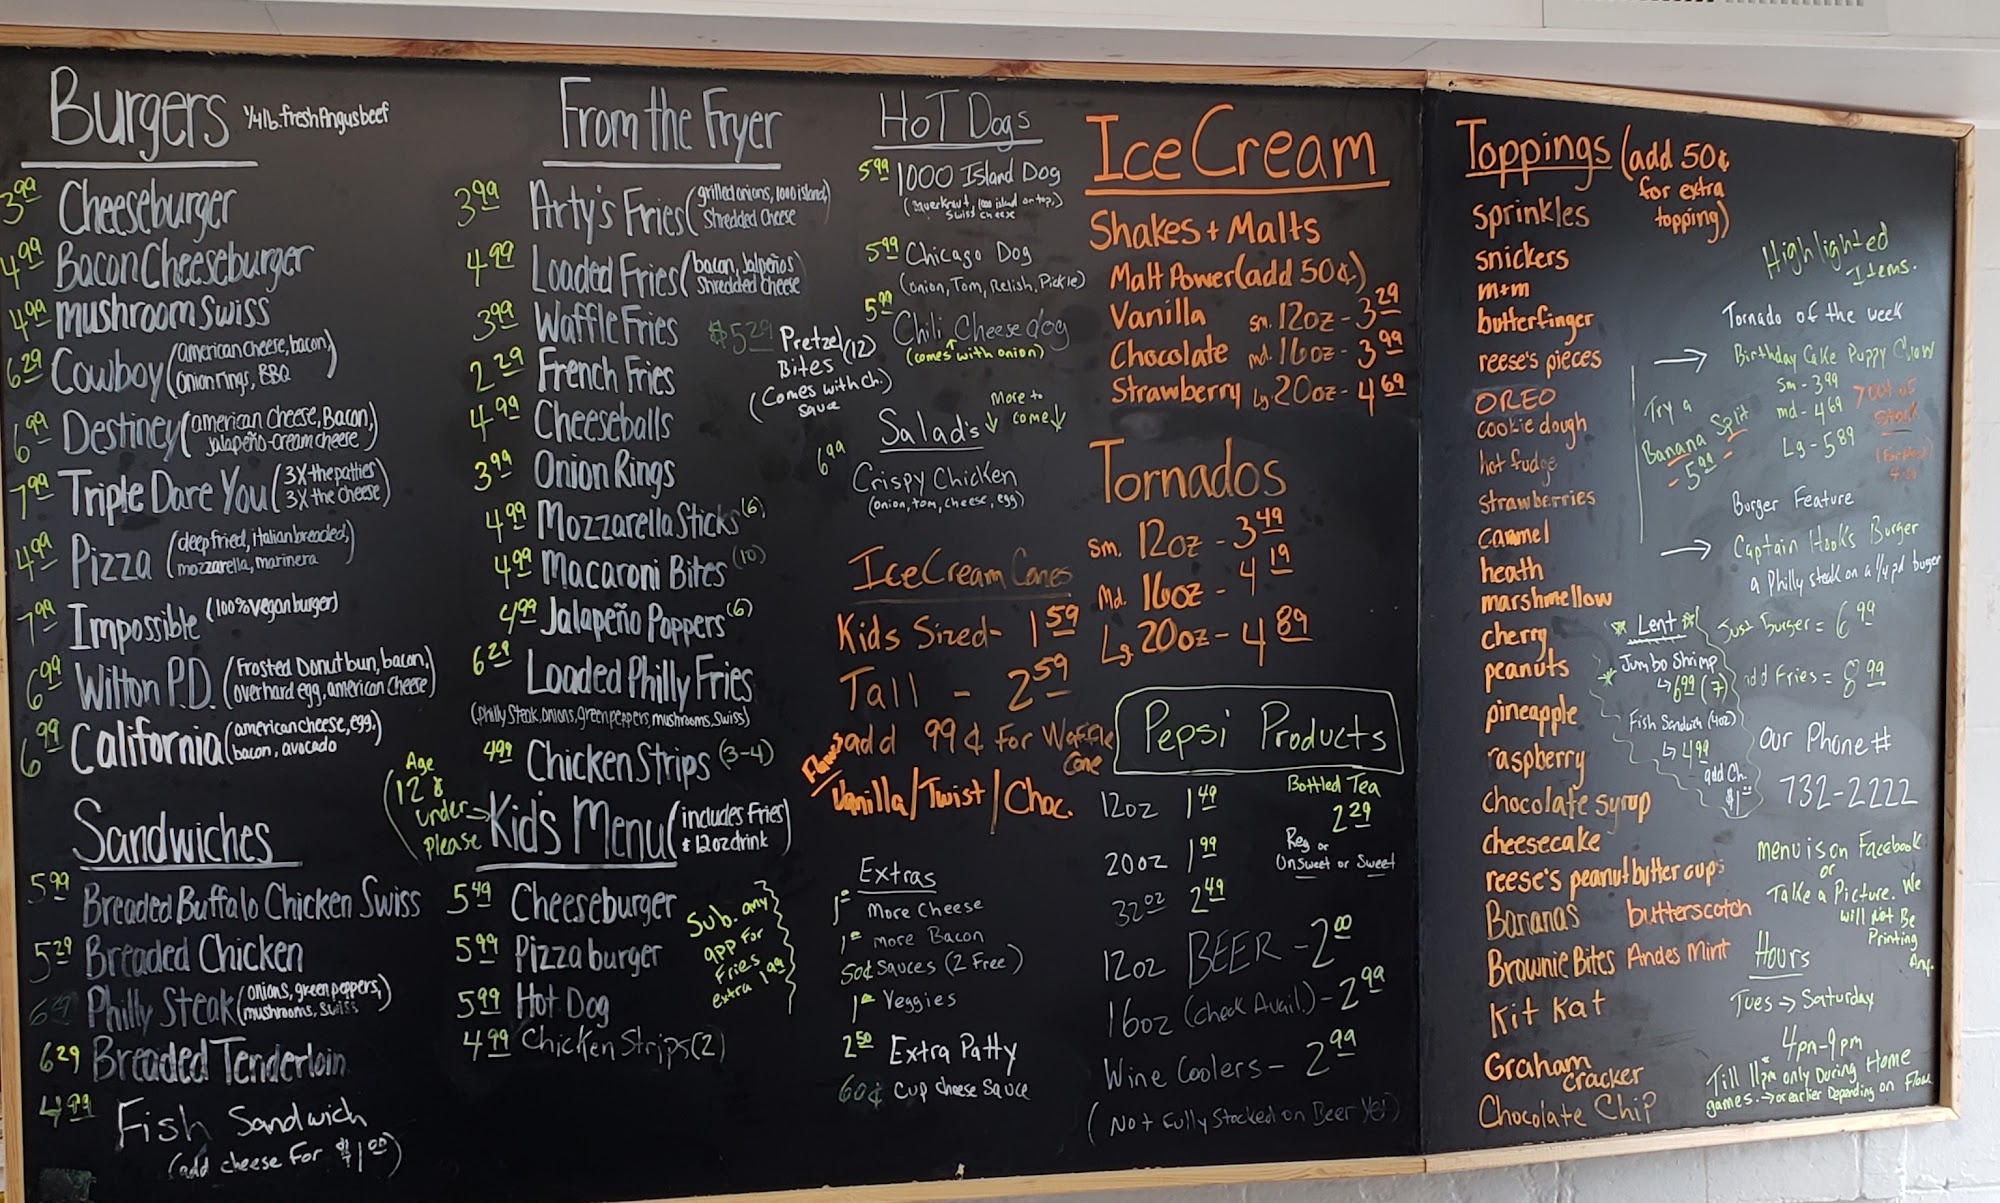 Burgers 1/4lb. fresh Angus beef
3.99 Cheeseburger
4.99 Bacon Cheeseburger
4.99 mushroom Swiss
6.29 Cowboy (american cheese, bacon,
onion rings, BBQ)
6.99 Destiney (american cheese, Bacon,
jalapeño-cream cheese)
7.99 Triple Dare You (3X the patties
3X the cheese)
4.99 Pizza (deep fried, italian breaded,
mozzarella, marinera)
7.99 Impossible (100% vegan burger)
6.99 Wilton P.D. (Frosted Donut bun, bacon,
over hard egg, american cheese)
6.99 California (american cheese, egg,
bacon, avocado)
Sandwiches
5.99 Breaded Buffalo Chicken Swiss
5.29 Breaded Chicken
6.29 Philly Steak (onions, green peppers,
mushrooms, swiss)
6.29 Breaded Tenderloin
4.99 Fish Sandwich
(add cheese for $1.00)
From the Fryer
3.99 Arty's Fries (grilled onions, 1000 island,
Shredded Cheese)
4.99 Loaded Fries (bacon, Jalpeños
Shredded cheese)
3.99 Waffle Fries
2.29 French Fries
4.99 Cheeseballs
3.99 Onion Rings
4.99 Mozzarella Sticks (6)
4.99 Macaroni Bites (10)
4.99 Jalapeño Poppers (6)
6.29 Loaded Philly Fries
(Philly Steak, onions, green peppers, mushrooms, swiss)
4.99 Chicken Strips (3-4)
$5.29 Pretzel (12)
Bites
(Comes with ch.
sauce
(Age
12 &
under
please
Kid's Menu (includes Fries
& 12oz drink)
5.49 Cheeseburger
5.99 Pizza burger
5.99 Hot Dog
4.99 Chicken Strips (2)
Sub. any
app for
Fries
extra 1.00
HoT Dogs
5.99 1000 Island Dog
(Sauerkraut, 1000 island on top,
Swiss cheese)
5.99 Chicago Dog
(onion, Tom, Relish, Pickle)
5.99 Chili Cheese dog
(comes with onion)
Salads
More to
come
6.99 Crispy Chicken
(onion, tom, cheese, egg)
Ice Cream Cones
Kids Sized - 1.59
Tall - 2.59
add 99¢ for Waffle
Cone
Flavors
Vanilla / Twist / Choc.
Extras
1.00 More Cheese
1.00 more Bacon
50¢ Sauces (2 Free)
1.00 Veggies
2.50 Extra Patty
60¢ Cup cheese Sauce
Ice Cream
Shakes + Malts
Malt Power (add 50¢)
Vanilla sm. 12oz - 3.29
Chocolate md. 16oz - 3.99
Strawberry Lg. 20oz - 4.69
Tornados
Sm. 12oz - 3.49
Md. 16oz - 4.19
Lg. 20oz - 4.89
Pepsi Products
12oz 1.49
20oz 1.99
32oz 2.49
Bottled Tea
2.29
Reg or
Unsweet or Sweet
12oz BEER - 2.00
16oz (check Avail.) - 2.99
Wine Coolers - 2.99
(Not Fully Stocked on Beer Yet)
Toppings (add 50¢
for extra
topping)
sprinkles
snickers
m+m
butterfinger
reese's pieces
OREO
cookie dough
hot fudge
strawberries
caramel
heath
marshmellow
cherry
peanuts
pineapple
raspberry
chocolate syrup
cheesecake
reese's peanut butter cups
Bananas butterscotch
Brownie Bites Andes Mint
Kit Kat
Graham
cracker
Chocolate Chip
Highlighted
Items.
Tornado of the week
Birthday Cake Puppy Chow
Sm - 3.99
md - 4.69
Lg - 5.89
out of
Stock
Try a
Banana Split
- 5.99 -
Burger Feature
Captain Hooks Burger
a Philly steak on a 1/4 pd burger
Just Burger = 6.99
add Fries = 8.99
Lent
Jumbo Shrimp
6.99 (7)
Fish Sandwich (4oz)
4.99
add Ch.
$1.00
Our Phone #
732-2222
menu is on Facebook
or
Take a Picture. We
will Not Be
Printing
Any.
Hours
Tues → Saturday
4pm-9pm
Till 11pm only During Home
games. → or earlier Depending on Flow